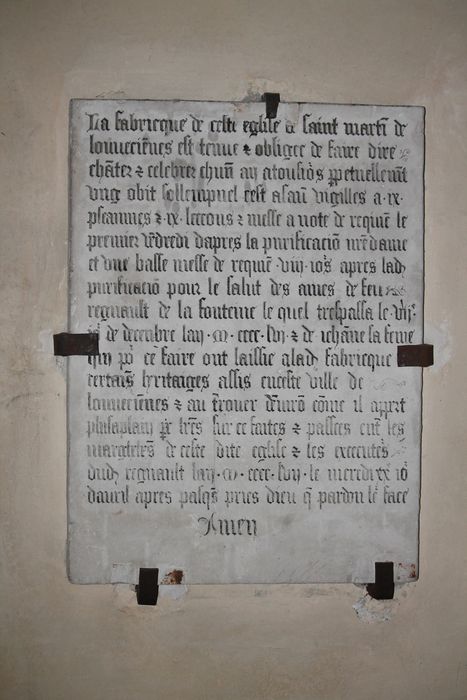 La fabricque de ceste eglise de saint marti de
louveciēnes est tenue & obligee de faire dire
chāter & celebrer chūn an a tousiōs ppetuellemēt
ung obit sollempnel cest asauī vigilles a ix
pseaumes & ix leccons & messe a note de requiē le
premier vēdredi dapres la purificaciō nre dame
et une basse messe de requiē viij iōs apres lad
purificaciō pour le salut des ames de feu
regnault de la fonteine le quel trespassa le
iō de decembre lan m cccc lvj & de iehāne sa feme
qui pō ce faire ont laissie a lad fabricque
certaīs hritaiges assis en ceste ville de
louveciēnes & au trouer dēvirō cōme il appīt
plus a plain pr lrēs sur ce faites & passees entē les
margliērs de ceste dite eglise & les executēs
dudz regnault lan m cccc lvij le mercredi xx iō
davril apres pasqs pries dieu q pardon le' face
Amen